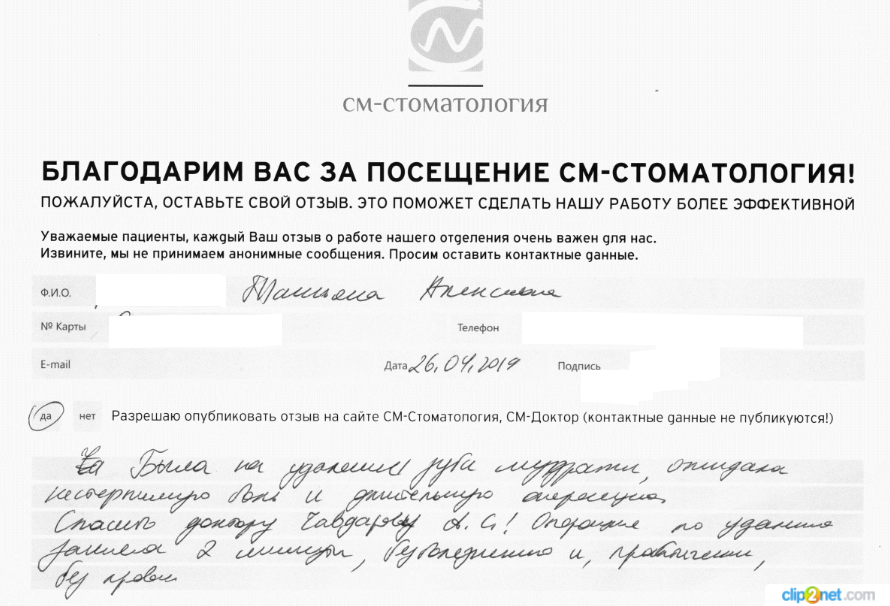 см-стоматология
БЛАГОДАРИМ ВАС ЗА ПОСЕЩЕНИЕ СМ-СТОМАТОЛОГИЯ!
ПОЖАЛУЙСТА, ОСТАВЬТЕ СВОЙ ОТЗЫВ. ЭТО ПОМОЖЕТ СДЕЛАТЬ НАШУ РАБОТУ БОЛЕЕ ЭФФЕКТИВНОЙ
Уважаемые пациенты, каждый Ваш отзыв о работе нашего отделения очень важен для нас.
Извините, мы не принимаем анонимные сообщения. Просим оставить контактные данные.
Ф.И.О. Татьяна
№ Карты Телефон
E-mail Дата 26.04.2019 Подпись
да нет Разрешаю опубликовать отзыв на сайте СМ-Стоматология, СМ-Доктор (контактные данные не публикуются!)
Была на удалении зуба мудрости, ожидала
нестерпимую боль и длительную операцию.
Спасибо доктору А.С! Операция по удалению
заняла 2 минуты, безболезненно и, практически,
без крови
clip2net.com